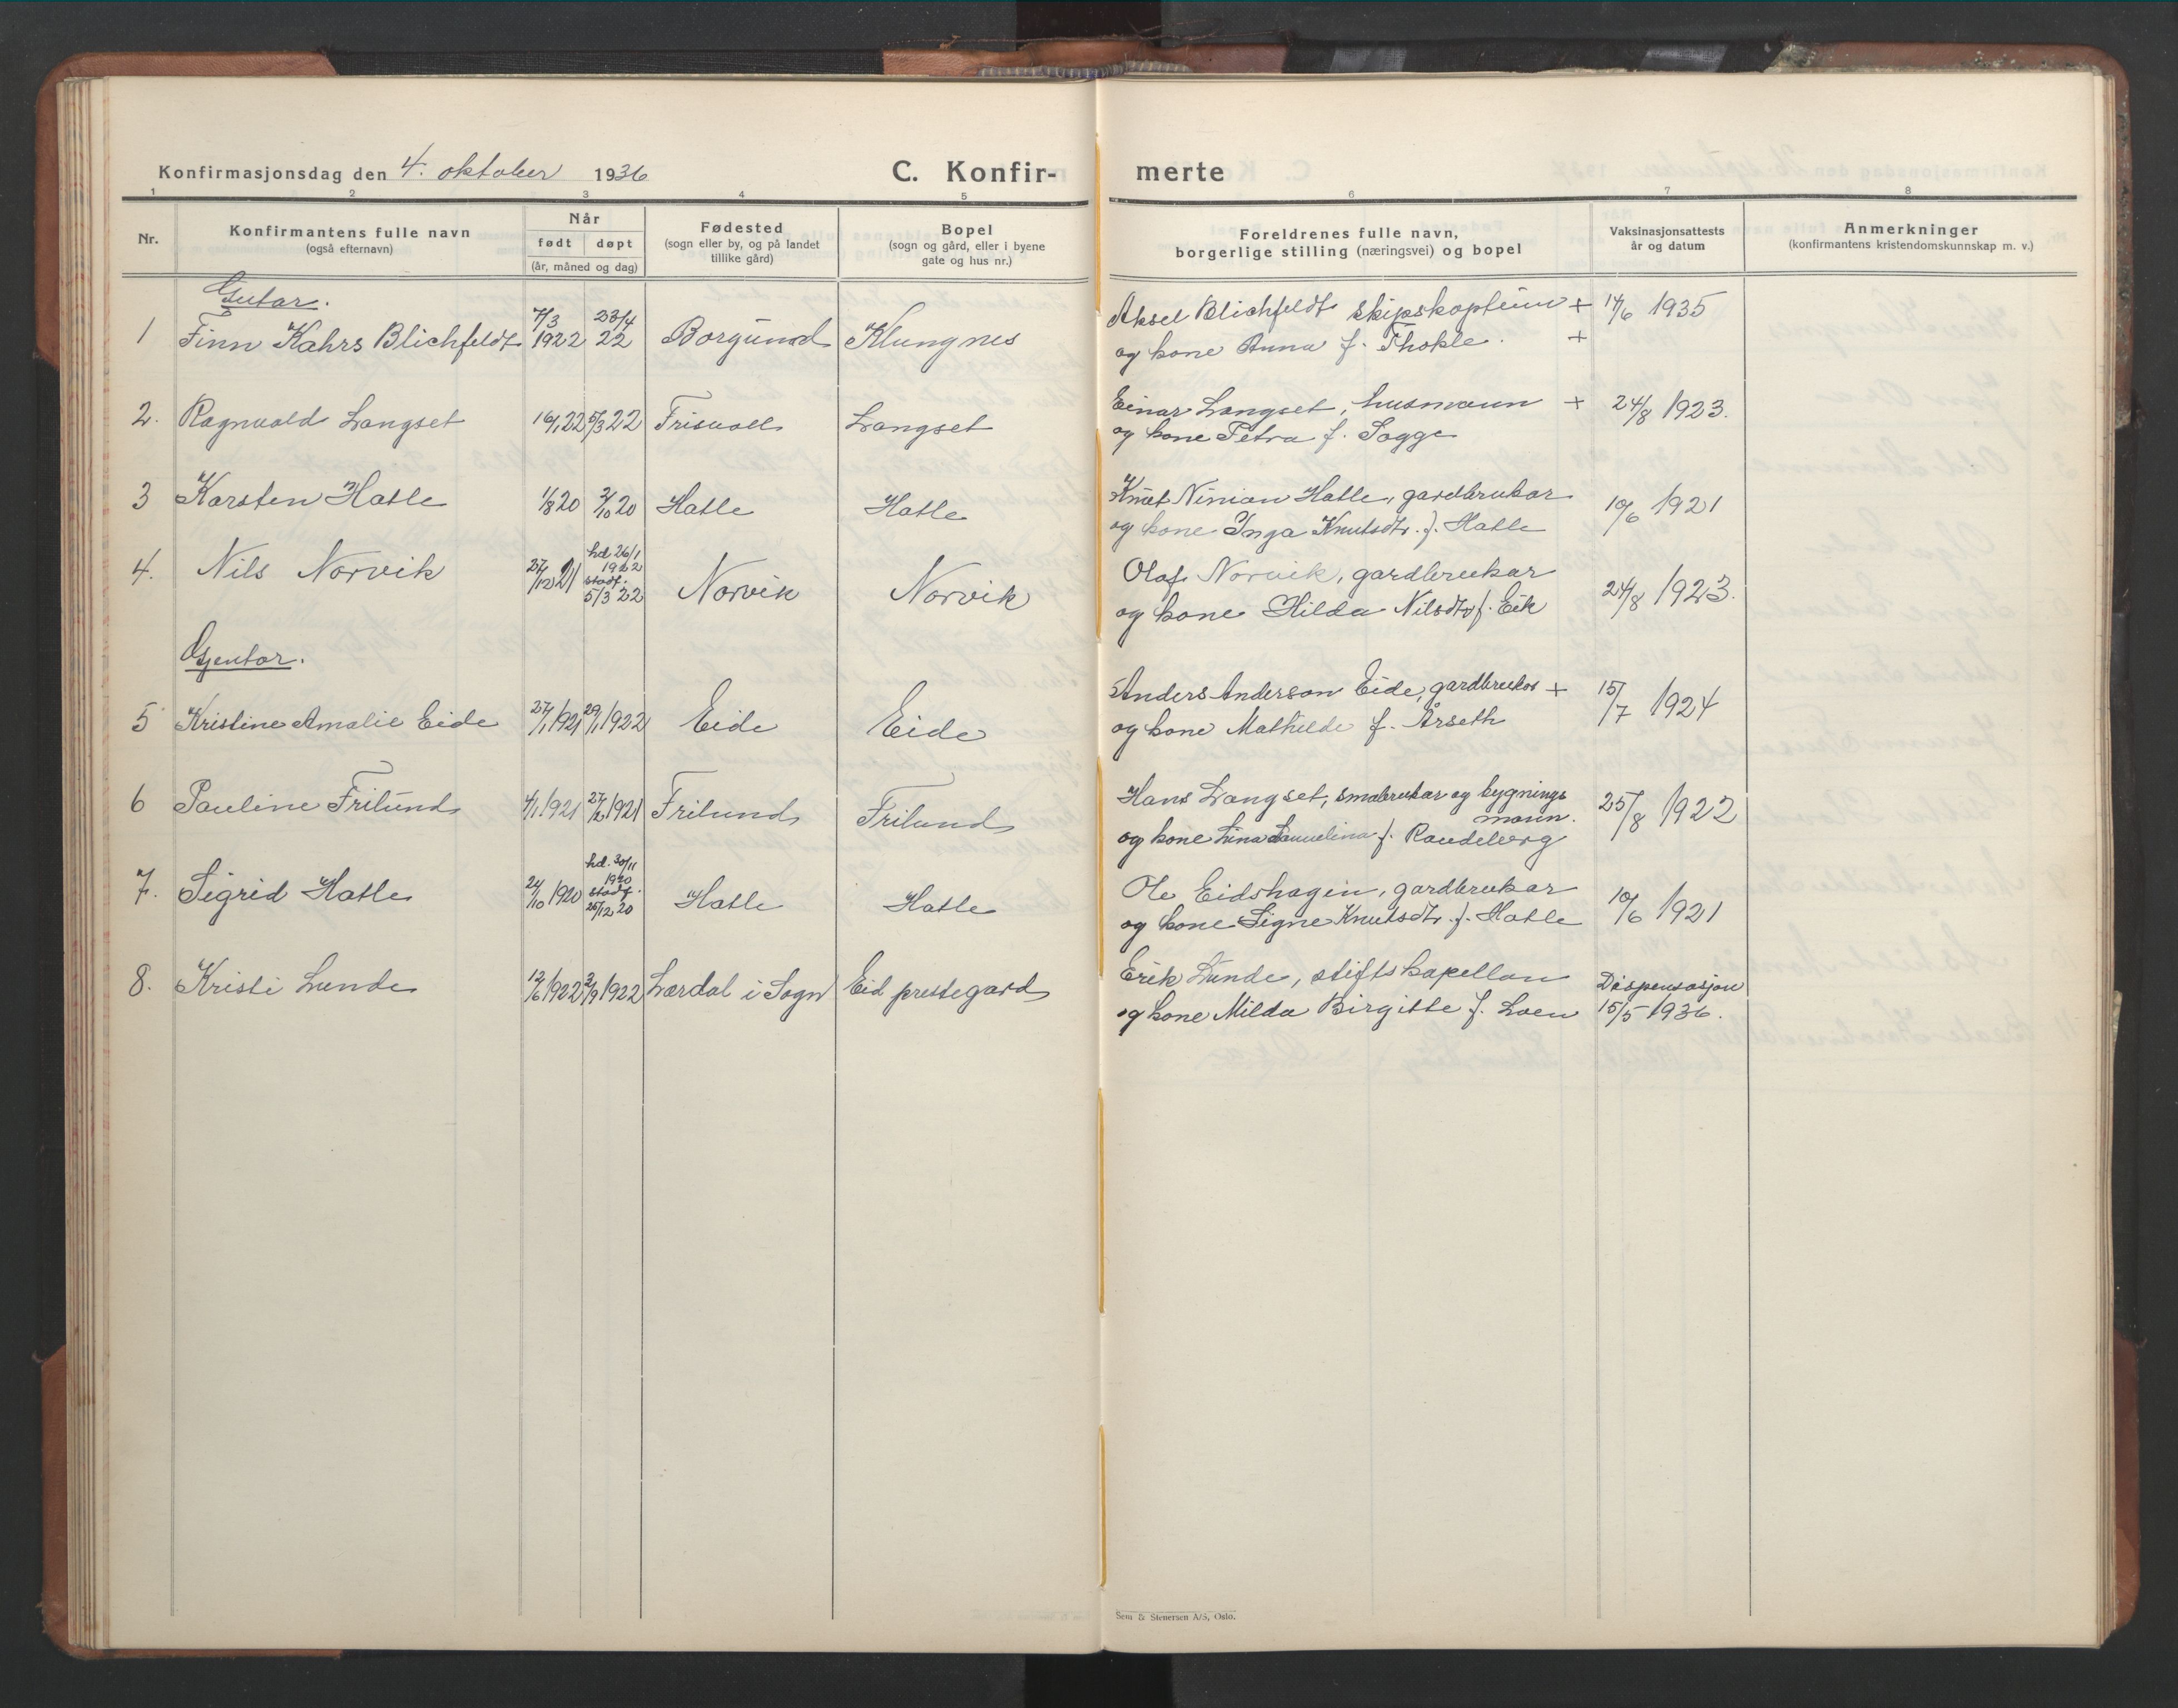 Konfirmasjonsdag den 4. oktober 1936
C. Konfirmerte
1 2 3 4 5 6 7 8
Nr.
Konfirmantens fulle navn
(også efternavn)
Når
født døpt
(år, måned og dag)
Fødested
(sogn eller by, og på landet
tillike gård)
Bopel
(sogn og gård, eller i byene
gate og hus nr.)
Foreldrenes fulle navn,
borgerlige stilling (næringsvei) og bopel
Vaksinasjonsattests
år og datum
Anmerkninger
(konfirmantens kristendomskunnskap m. v.)
Gutar.
1 Finn Kahrs Blichfeldt 7/3 1922 23/4 22 Borgund Klungnes Aksel Blichfeldt skipskaptein + 17/6 1935
og kone Anna f. Thokle. +
2. Ragnvald Langset 16/1 22 5/3 22 Frisvoll Langset Einar Langset, husmann + 24/8 1923.
og kone Petra f. Sogge
3 Karsten Hatle 1/8 20 3/10 20 Hatle Hatle Knut Ninian Hatle, gardbrukar 10/6 1921
og kone Inga Knutsdtr. f. Hatle
4. Nils Norvik 27/12 21 hd. 26/1 1922 stadf. 5/3 22 Norvik Norvik Olaf Norvik, gardbrukar 24/8 1923.
og kone Hilda Nilsdtr f. Eik
Gjentar.
5 Kristine Amalie Eide 27/1 1921 29/1 1922 Eide Eide Anders Anderson Eide, gardbrukar + 15/7 1924
og kone Mathilde f. Årseth
6 Pauline Frilund 4/1 1921 27/2 1921 Frilund Frilund Hans Langset, småbrukar og bygnings 25/8 1922
mann.
og kone Lina f. Raudeberg
7. Sigrid Hatle 24/10 1920 hd. 30/11 1920 stadf. 26/12 20 Hatle Hatle Ole Eidshagen, gardbrukar 10/6 1921
og kone Signe Knutsdtr. f. Hatle
8. Kristi Lunde 12/6 1922 3/9 1922 Lærdal i Sogn Eid prestegard Erik Lunde, stiftskapellan Dispensasjon
og kone Milda Birgitte f. Loen 15/5 1936.
Sem & Stenersen A/S, Oslo.